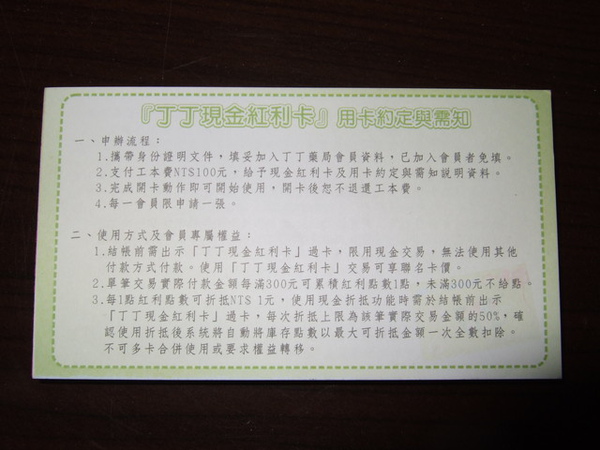 『丁丁現金紅利卡』用卡約定與需知
一、申辦流程：
1.攜帶身份證明文件，填妥加入丁丁藥局會員資料，已加入會員者免填。
2.支付工本費NT$100元，給予現金紅利卡及用卡約定與需知說明資料。
3.完成開卡動作即可開始使用，開卡後恕不退還工本費。
4.每一會員限申請一張。
二、使用方式及會員專屬權益：
1.結帳前需出示「丁丁現金紅利卡」過卡，限用現金交易，無法使用其他
付款方式付款。使用「丁丁現金紅利卡」交易可享聯名卡價。
2.單筆交易實際付款金額每滿300元可累積紅利點數1點，未滿300元不給點。
3.每1點紅利點數可折抵NT$ 1元，使用現金折抵功能時需於結帳前出示
「丁丁現金紅利卡」過卡，每次折抵上限為該筆實際交易金額的50%，確
認使用折抵後系統將自動將庫存點數以最大可折抵金額一次全數扣除。
不可多卡合併使用或要求權益轉移。